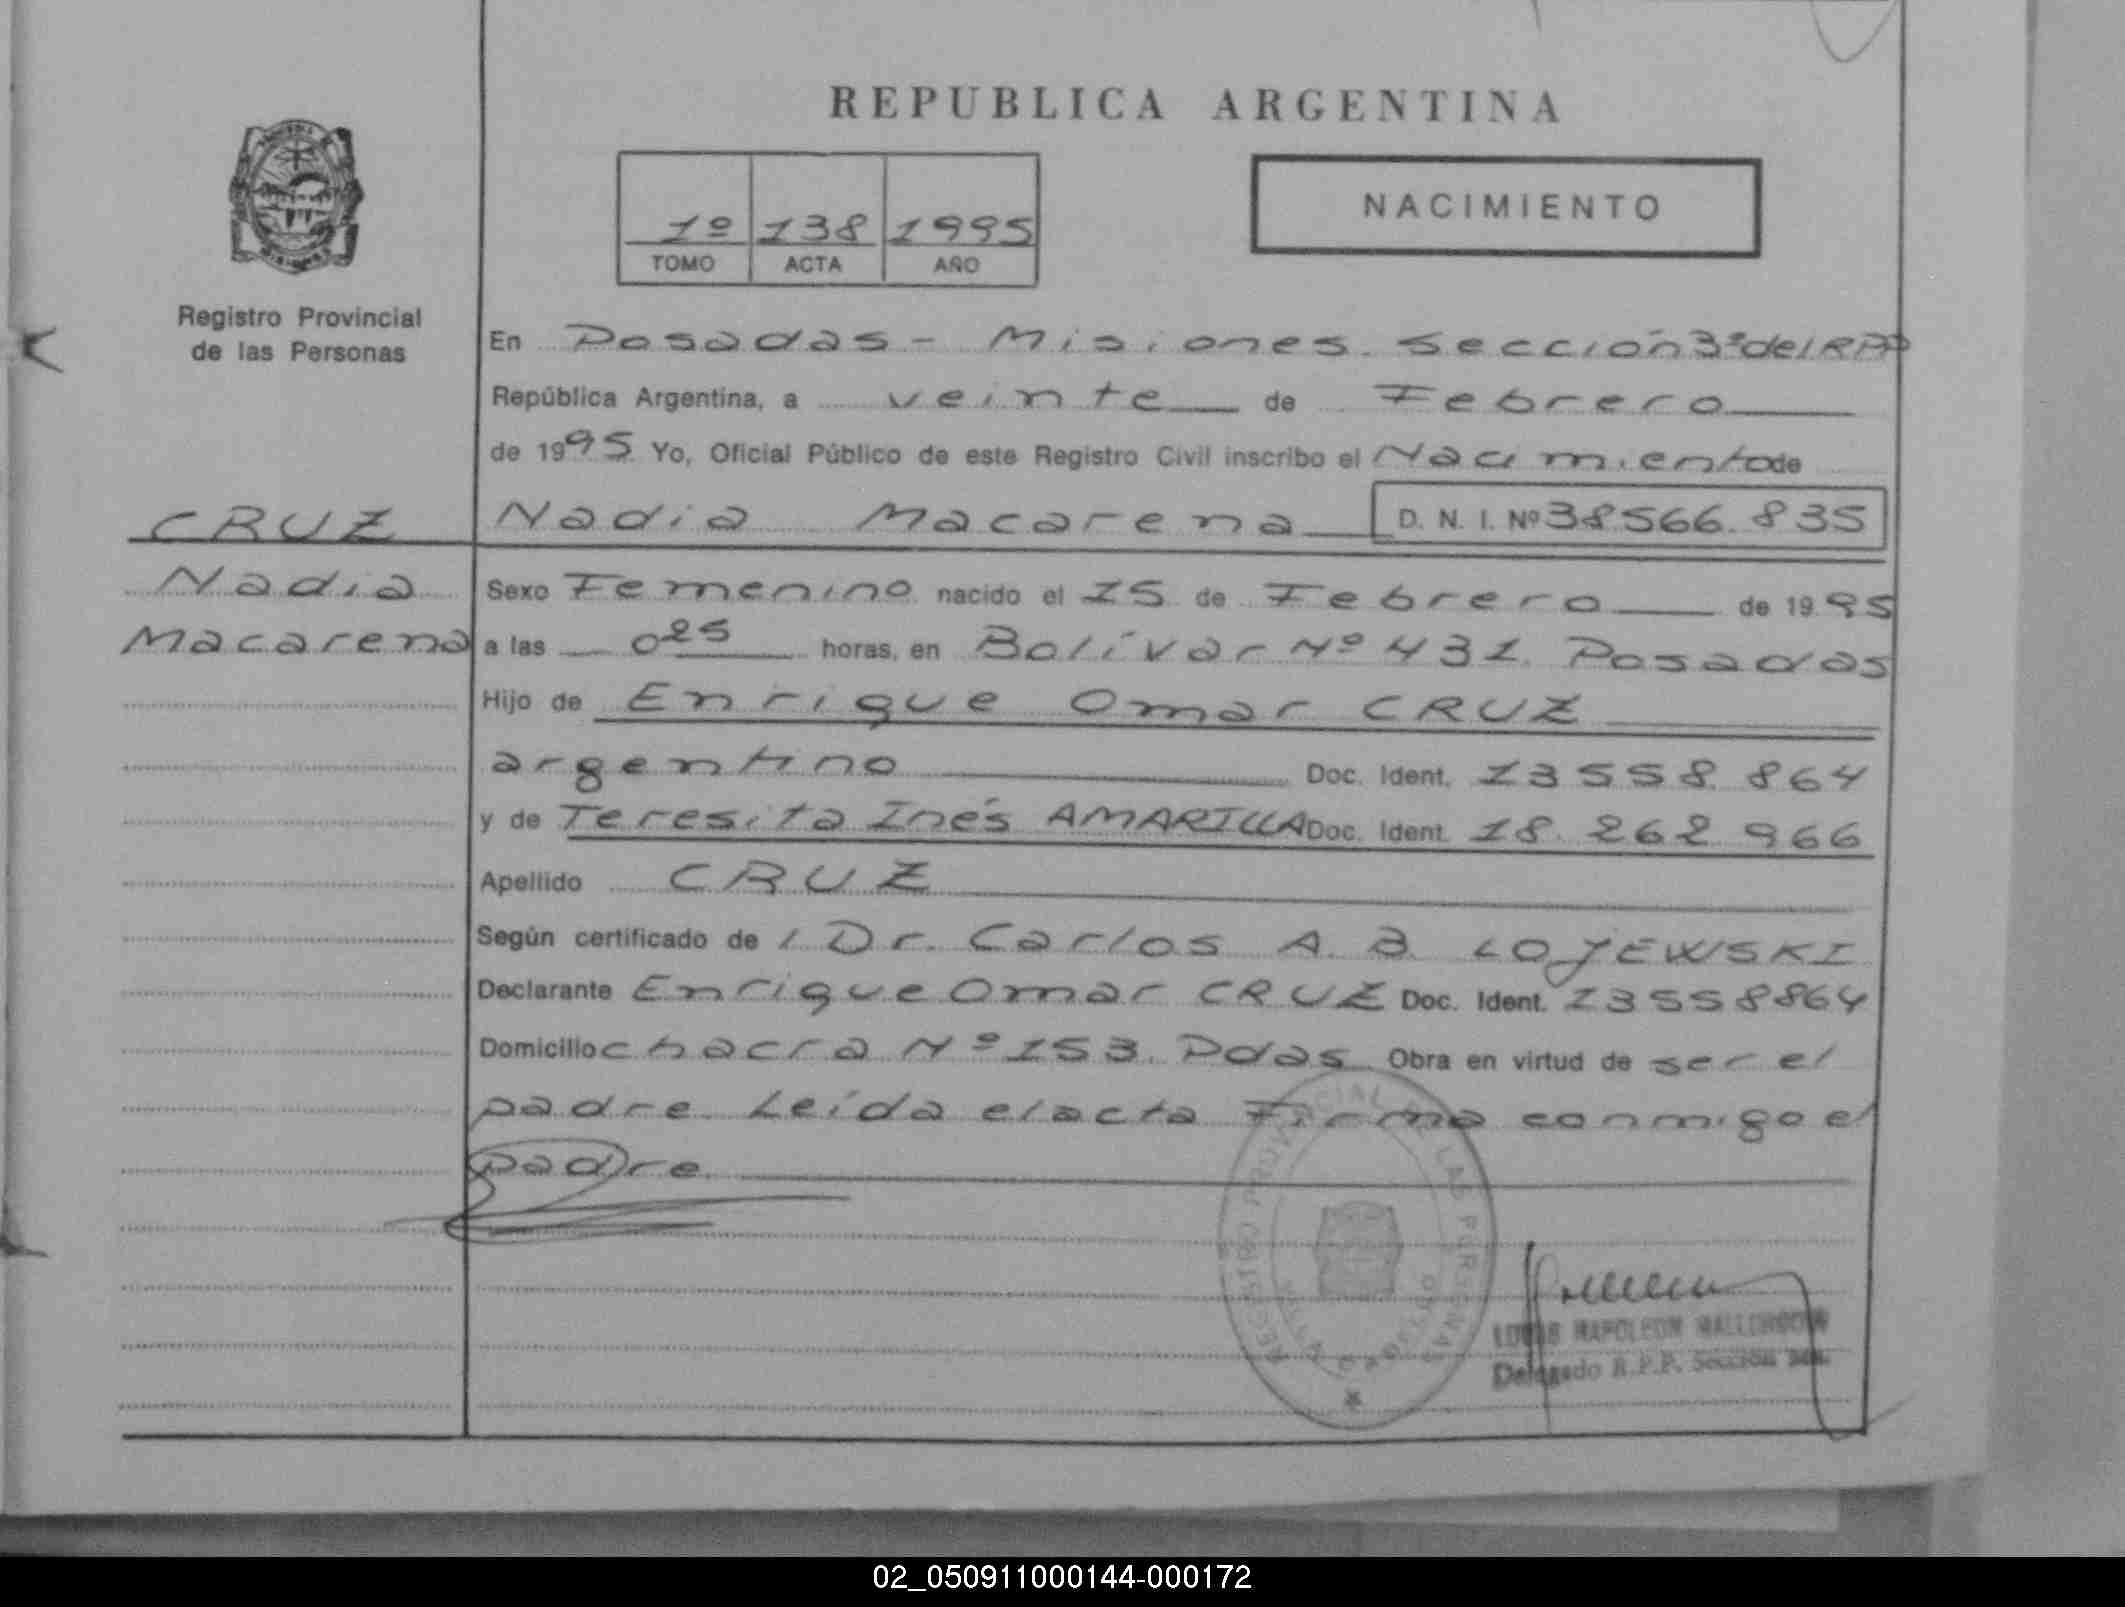 REPUBLICA ARGENTINA
1º 138 1995
TOMO ACTA AÑO
NACIMIENTO
Registro Provincial
de las Personas
En Posadas - Misiones. Sección 3ª del RPP
República Argentina, a veinte de Febrero
de 1995. Yo, Oficial Público de este Registro Civil inscribo el Nacimiento de
CRUZ
Nadia Macarena D. N. I. Nº 38566.835
Nadia
Macarena
Sexo Femenino nacido el 15 de Febrero de 1995
a las 0 25 horas, en Bolívar Nº 431. Posadas
Hijo de Enrique Omar CRUZ
argentino Doc. Ident. 13 558 864
y de Teresita Inés AMARILLA Doc. Ident. 18. 262 966
Apellido CRUZ
Según certificado de / Dr. Carlos A. B. LOJEWSKI
Declarante Enrique Omar CRUZ Doc. Ident. 13558864
Domicilio chacra Nº 153. Pdas. Obra en virtud de ser el
padre. Leída el acta Firma conmigo el
padre.
REGISTRO PROVINCIAL DE LAS PERSONAS
NAPOLEON
Delegado R.P.P. Sección 3ra.
02_050911000144-000172